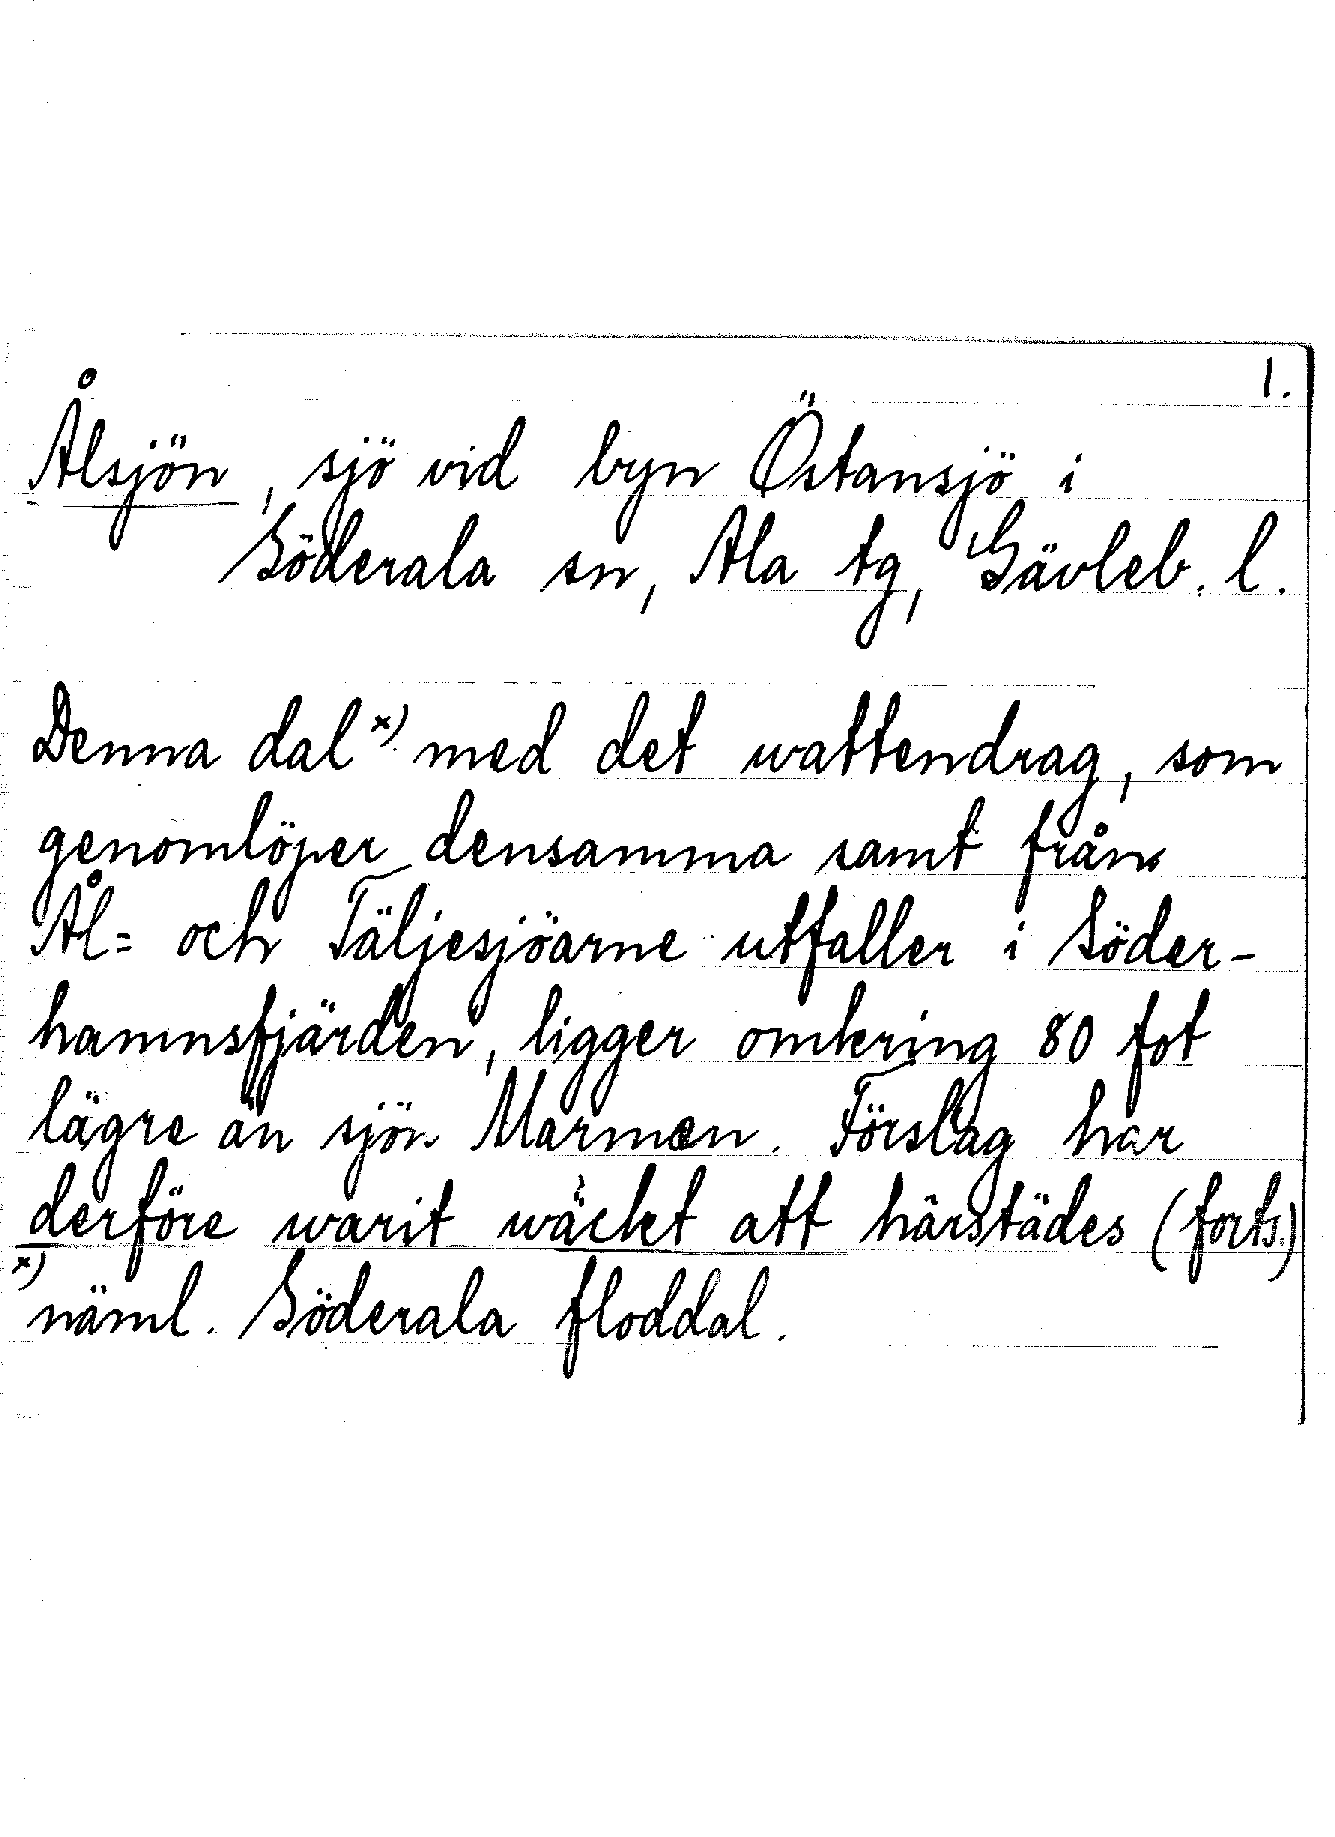 1.
Ålsjön, sjö vid byn Östansjö i
Söderala sn, Ala tg, Gävleb. l.
Denna dal x) med det wattendrag, som
genomlöper densamma samt från
Ål= och Täljesjöarne utfaller i Söder-
hamnsfjärden, ligger omkring 80 fot
lägre än sjön Marmen. Förslag har
derföre warit wäckt att härstädes (forts.)
x) näml. Söderala floddal.